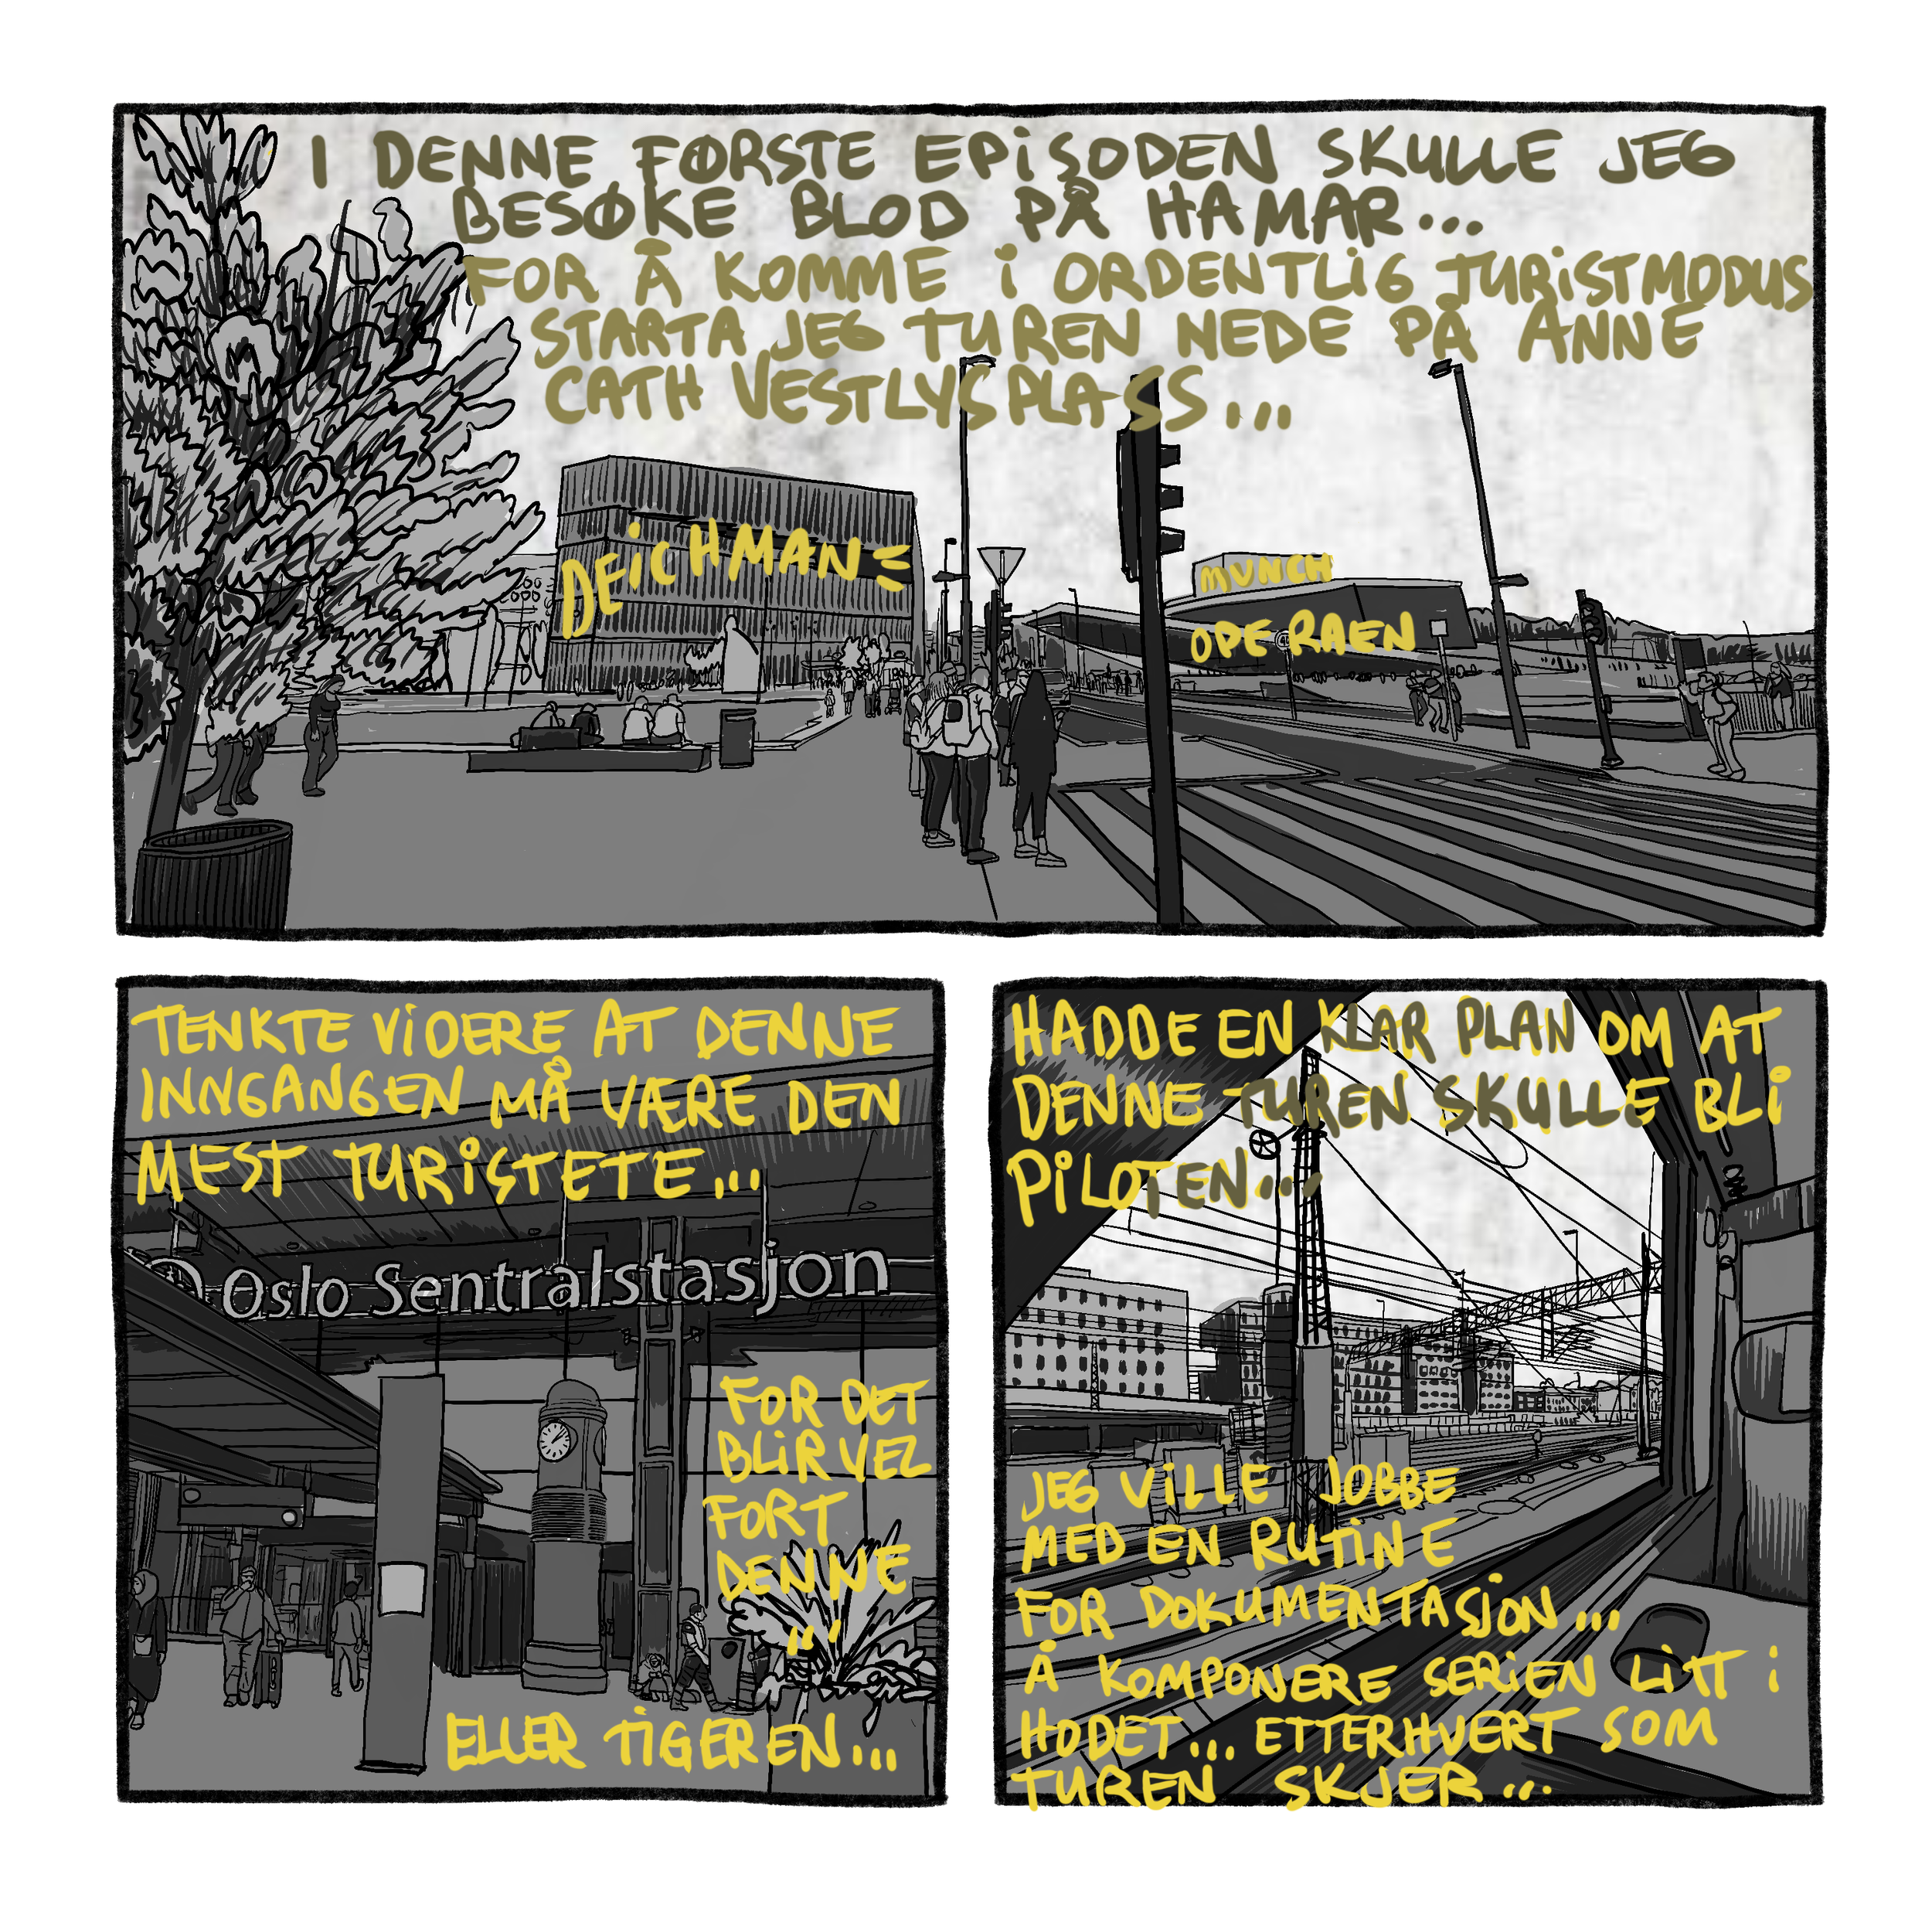 I DENNE FØRSTE EPISODEN SKULLE JEG
BESØKE BLOD PÅ HAMAR...
FOR Å KOMME i ORDENTLiG TURiSTMODUS
STARTA JEG TUREN NEDE PÅ ANNE
CATH VESTLYS PLASS...
DEiCHMAN
MUNCH
OPERAEN
TENKTE ViDERE AT DENNE
INNGANGEN MÅ VÆRE DEN
MEST TURiSTETE...
Oslo Sentralstasjon
FOR DET
BLiR VEL
FORT
DENNE
...
ELLER TiGEREN...
HADDE EN KLAR PLAN OM AT
DENNE TUREN SKULLE BLi
PiLOTEN...
JEG ViLLE JOBBE
MED EN RUTiNE
FOR DOKUMENTASjON...
Å KOMPONERE SERiEN LiTT i
HODET... ETTERHVERT SOM
TUREN SKJER...